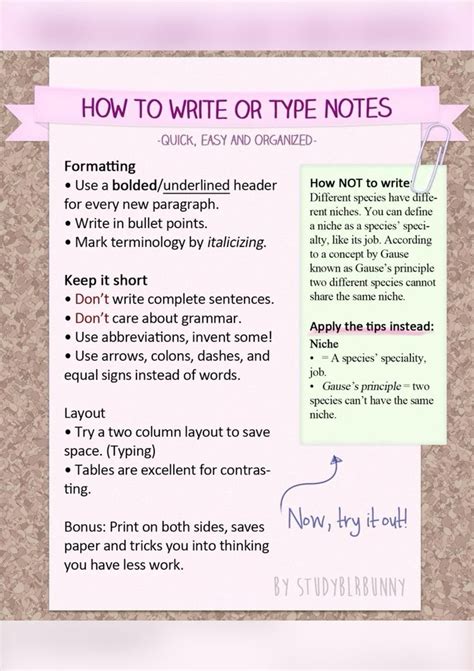 HOW TO WRITE OR TYPE NOTES
-QUICK, EASY AND ORGANIZED-
Formatting
• Use a bolded/underlined header
for every new paragraph.
• Write in bullet points.
• Mark terminology by italicizing.
Keep it short
• Don't write complete sentences.
• Don't care about grammar.
• Use abbreviations, invent some!
• Use arrows, colons, dashes, and
equal signs instead of words.
Layout
• Try a two column layout to save
space. (Typing)
• Tables are excellent for contras-
ting.
Bonus: Print on both sides, saves
paper and tricks you into thinking
you have less work.
How NOT to write
Different species have diffe-
rent niches. You can define
a niche as a species' speci-
alty, like its job. According
to a concept by Gause
known as Gause's principle
two different species cannot
share the same niche.
Apply the tips instead:
Niche
• = A species' speciality,
job.
• Gause's principle = two
species can't have the same
niche.
Now, try it out!
BY STUDYBLRBUNNY